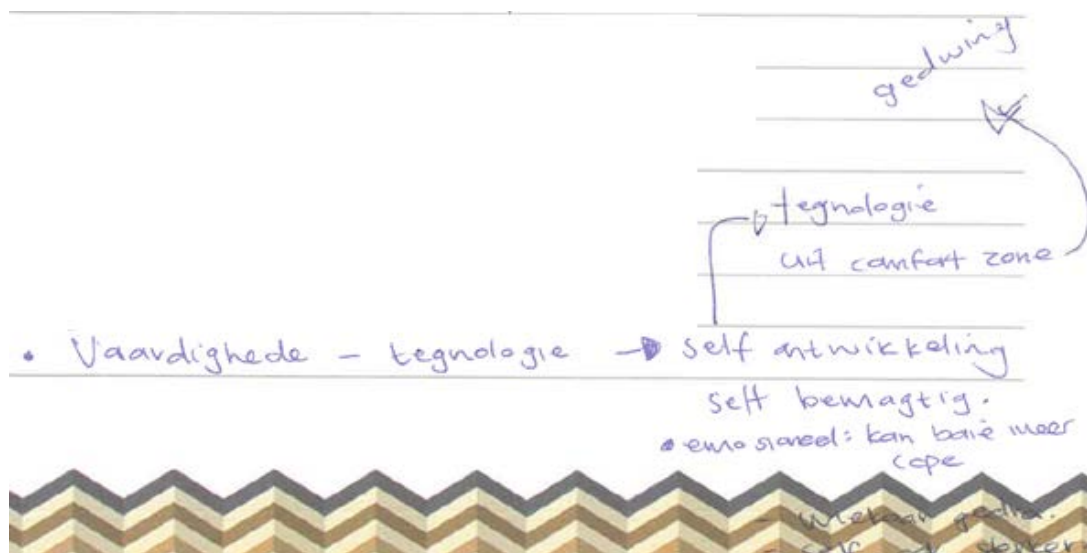 gedwing
tegnologie
uit comfort zone
• Vaardighede - tegnologie → self ontwikkeling
self bemagtig.
• emosioneel: kan baie meer
cope